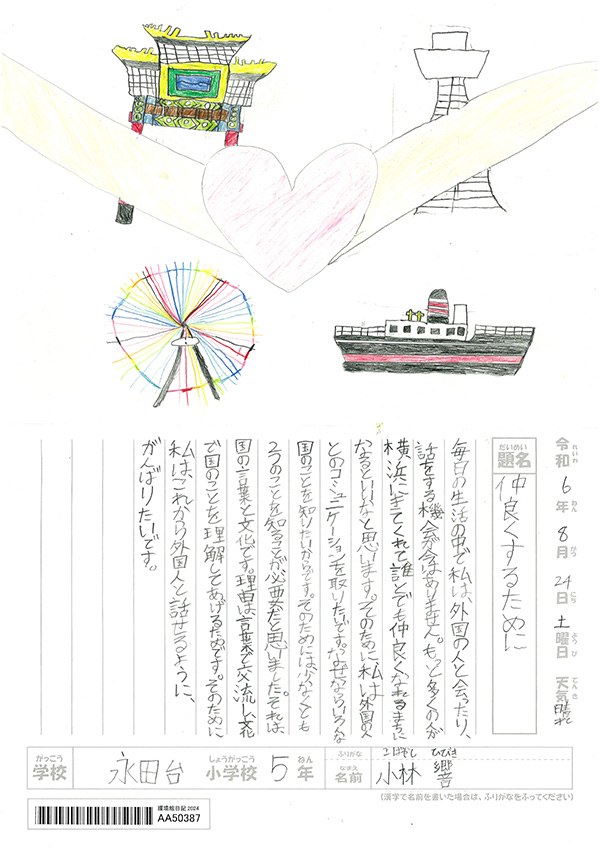 令和6年8月24日土曜日 天気 晴れ
れいわ ねん がつ にち ようび てんき
だいめい
題名 仲良くするために
毎日の生活の中で私は、外国の人と会ったり、
話をする機会が今はありません。もっと多くの人が
横浜にきてくれて誰とでも仲良くなれるまちに
なるといいなと思います。そのために私は外国の人
とのコミュニケーションを取りたいです。なぜならいろんな
国のことを知りたいからです。そのためには少なくとも
2つのことを知ることが必要だと思いました。それは
国の言葉と文化です。理由は言葉で交流し、文化
で国のことを理解してあげるためです。そのために
私はこれから外国人と話せるように、
がんばりたいです。
がっこう しょうがっこう ねん ふりがな こばやし ひびき
学校 永田台 小学校 5年 なまえ 名前 小林 響
(漢字で名前を書いた場合は、ふりがなをふってください)
環境絵日記 2024
AA50387